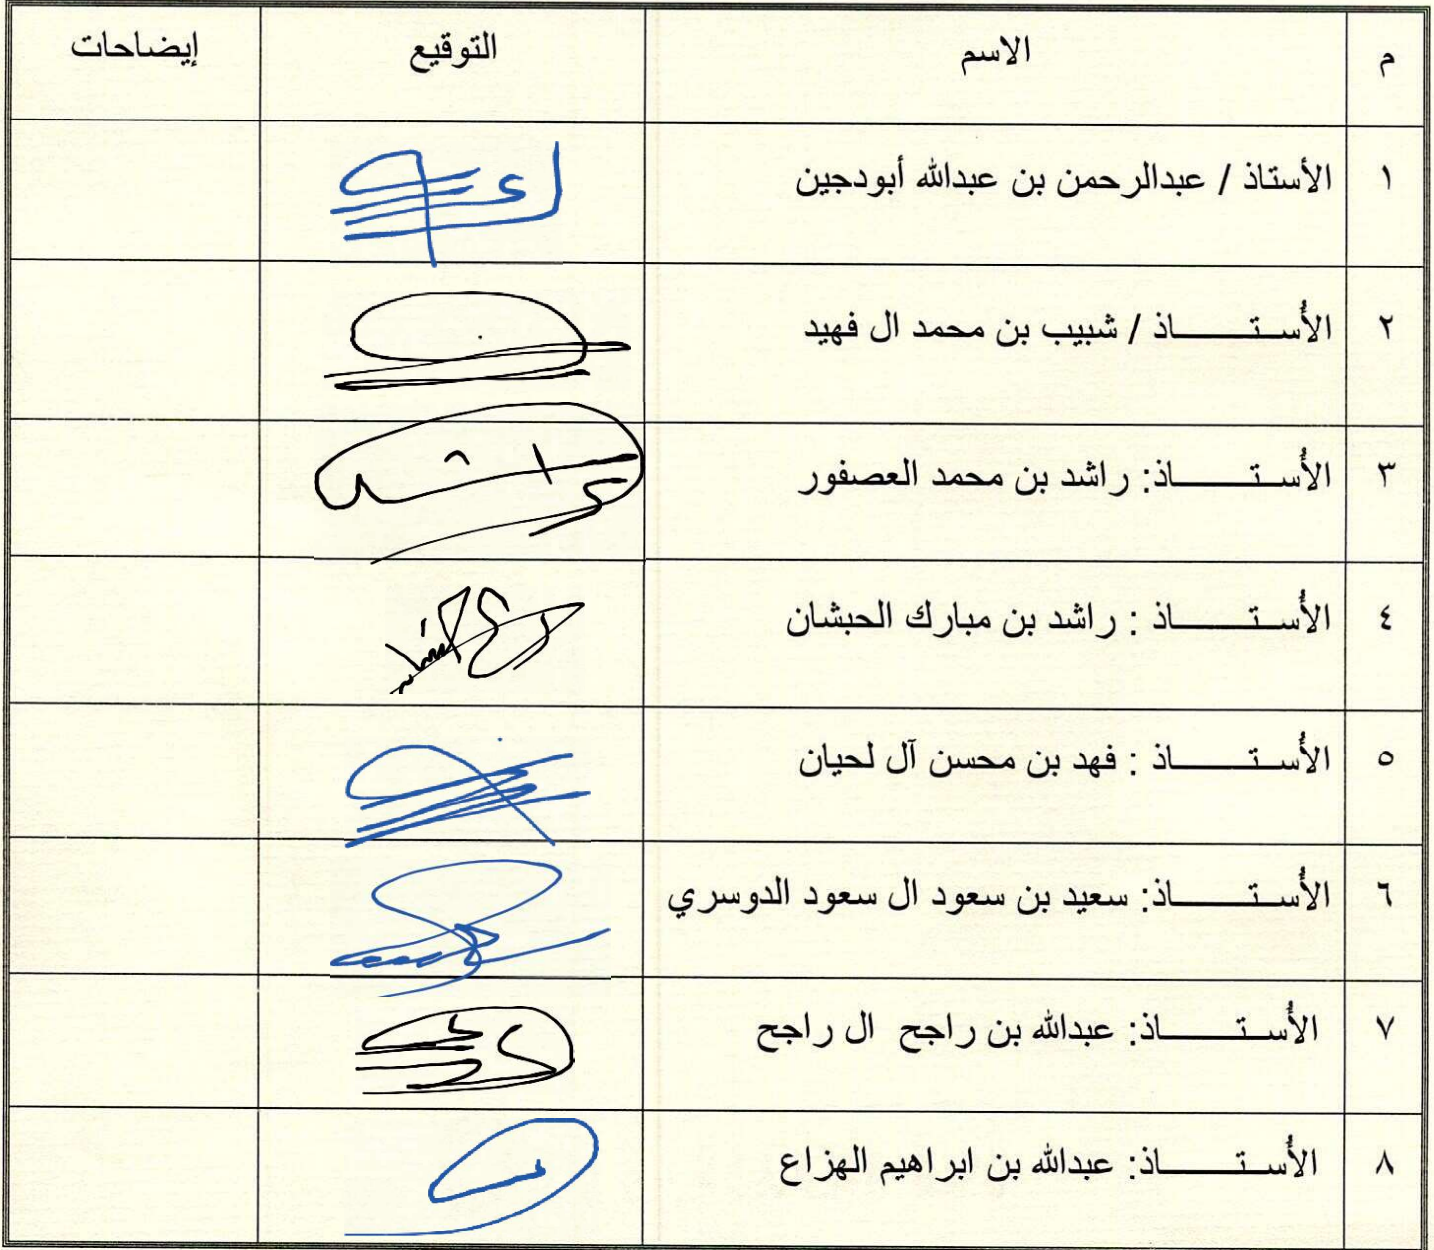 م الاسم التوقيع إيضاحات
١ الأستاذ / عبدالرحمن بن عبدالله أبودجين
٢ الأُستــــــاذ / شبيب بن محمد ال فهيد
٣ الأُستــــــاذ: راشد بن محمد العصفور
٤ الأُستــــــاذ : راشد بن مبارك الحبشان
٥ الأُستــــــاذ : فهد بن محسن آل لحيان
٦ الأُستــــــاذ: سعيد بن سعود ال سعود الدوسري
٧ الأُستــــــاذ: عبدالله بن راجح ال راجح
٨ الأُستــــــاذ: عبدالله بن ابراهيم الهزاع